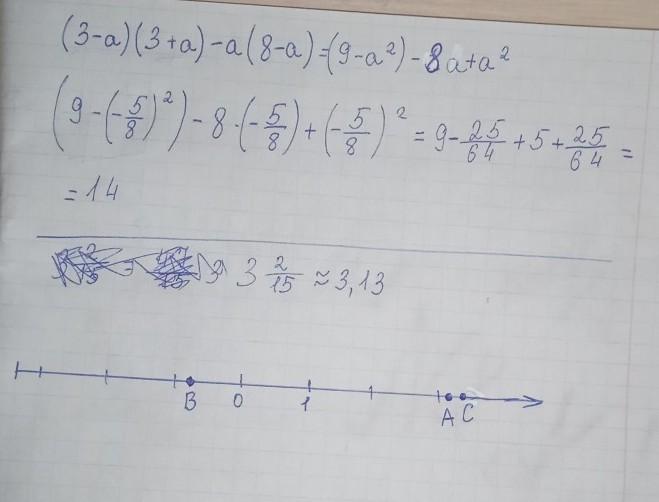 (3-a)(3+a)-a(8-a)=(9-a²)-8a+a²
(9-(-5/8)²)-8·(-5/8)+(-5/8)²=9-25/64+5+25/64=
=14
3 2/15≈3,13
B 0 1 A C